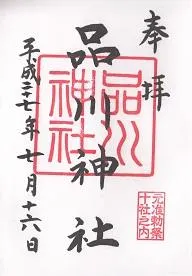 奉拝
品川神社
品川神社
元准勅祭
十社之内
平成二七年七月十六日